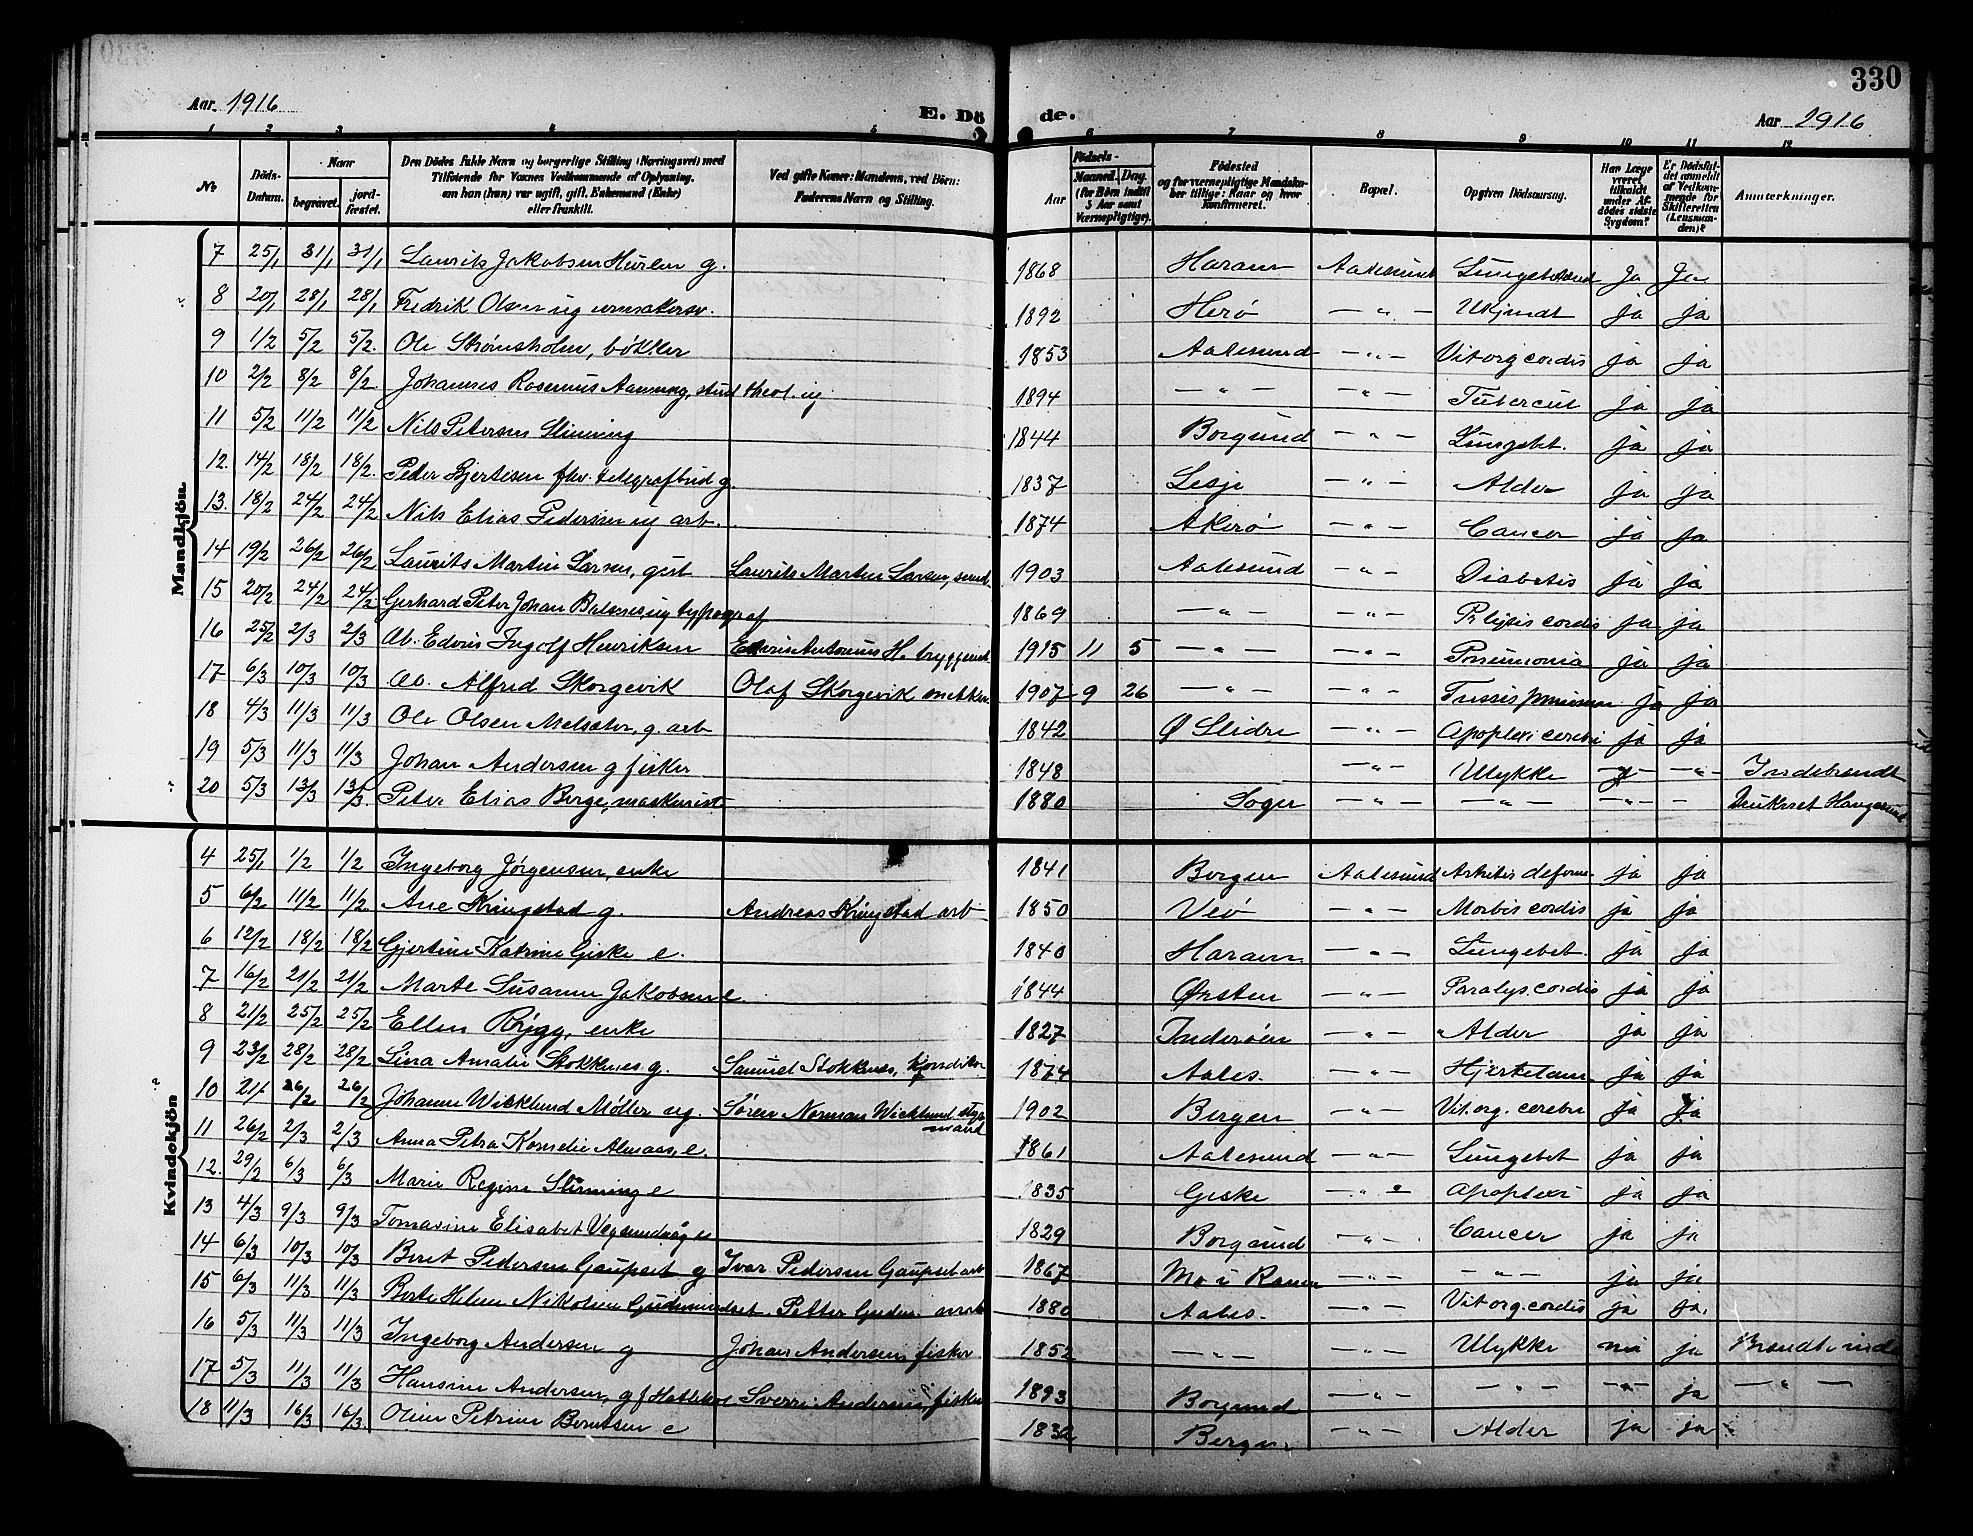 330
Aar 1916
E. Dö
de.
Aar 1916
1 2 3 4 5 6 7 8 9 10 11 12
No
Döds-Datum.
Naar
begravet.
jord-fæstet.
Den Dödes fulde Navn og borgerlige Stilling (Næringsvei) med
Tilföiende for Voxnes Vedkommende af Oplysning,
om han (hun) var ugift, gift, Enkemand (Enke)
eller fraskilt.
Ved gifte Koner: Mandens, ved Börn:
Faderens Navn og Stilling.
Födsels-
Aar
Maaned. Dag.
(for Börn indtil 5 Aar samt Værnepligtige).
Födested
og for værnepligtige Mandska-
ber tillige: Naar og hvor
konfirmeret.
Bopæl.
Opgiven Dödsaarsag.
Har Læge været tilkaldt under Af-dödes sidste Sygdom?
Er Dödsfal-det anmeldt af Vedkom-mende for Skifteretten (Lensman-den)?
Anmærkninger.
Mandkjön.
7 25/1 31/1 31/1 Laurits Jakobsen g. 1868 Haram Aalesund Ja Ja
8 20/1 28/1 28/1 Fredrik Olsen ug urmakersv. 1892 Herö — " — Ukjendt ja ja
9 1/2 5/2 5/2. Ole Strömsholm, bökker 1853 Aalesund — " — Vit org cordis ja ja
10 2/2 8/2 8/2 Johannes Rasmus Aamung, stud theol. ug 1894 — " — — " — Tubercul ja ja
11 5/2 11/2 11/2 Nils Petersen Slinning 1844 Borgund — " — Lungebet. ja ja
12. 14/2 18/2 18/2. Peder Gjertsen fhv. telegrafbud g. 1837 Lesje — " — Alder ja ja
13. 18/2 24/2 24/2 Nils Elias Pedersen ug arb. 1874 Akerö — " — Cancer ja ja
14 19/2 26/2 26/2 Laurits Martin Larsen, gut Laurits Martin Larsen, 1903 Aalesund — " — Diabetis ja ja
15 20/2 24/2 24/2 Gerhard Peter Johan ug typograf 1869 — " — — " — cordis ja ja
16 25/2 2/3 2/3 Ab. Edvin Ingolf Henriksen Edvin Antonius H. 1915 11 5 — " — — " — Pneumonia ja ja
17 6/3 10/3 10/3 Ab. Alfred Skorgevik Olaf Skorgevik snekker 1907 9 26 — " — — " — Tussis ja ja
18 4/3 11/3 11/3 Ole Olsen g. arb 1842 Ø Slidre — " — Apoplexi cerebri ja ja
19 5/3 11/3 11/3 Johan Andersen g fisker 1848 — " — Ulykke — " — Indebrændt
20 5/3 13/3 13/3. Peter Elias Berge, maskinist 1880 — " — — " — — " — — Haugesund
Kvindekjön
4 25/1 1/2 1/2 Ingeborg Jörgensen, enke 1841 Bergen Aalesund ja ja
5 6/2 11/2 11/2. Ane Kringstad g. Andreas Kringstad arb 1850 Veö — " — Morbis cordis ja ja
6 12/2 18/2 18/2 Gjertine Katrine Giske e. 1840 Haram — " — Lungebet. ja ja
7 16/2 21/2 21/2 Marte Susanne Jakobsen e 1844 Ørsten — " — Paralys. cordis ja ja
8 21/2 25/2 25/2 Ellen Rÿgg, enke 1827 Inderöen — " — Alder ja ja
9 23/2 28/2 28/2 Lina Amalie Stokknes g. Samuel Stokknes, 1874 Aales. — " — ja ja
10 21/ 26/2 26/2 Johanne Wicklund Møller ug. Sören Norman Wicklund styr mand 1902 Bergen — " — Vit. org. cerebri ja ja
11 26/2 2/3 2/3 Anna Petra Kornelie Almaas, e. 1861 Aalesund — " — Lungebet ja ja
12. 29/2 6/3 6/3 Marie Regine Slinning e 1835 Giske — " — Apoplexi ja ja
13 4/3 9/3 9/3 Tomasine Elisabet Vegsundvåg e 1829 Borgund — " — Cancer ja ja
14 6/3 10/3 10/3 Beret Pedersen Gaupset g Ivar Pedersen Gaupset arb 1867 Mo i Ranen — " — — " — ja ja
15 6/3 11/3 11/3 Berte Helene Nikoline Gudmundset Petter Gudm. 1880 Aales. — " — Vit org. cordis ja ja.
16 5/3 11/3 11/3 Ingeborg Andersen g Johan Andersen, fisker 1852 — " — Ulykke nei ja Brændt inde
17 5/3 11/3 11/3 Hansine Andersen, g f Sverre Andersen, fisker 1893 Borgund — " — — " — — " — ja — " —
18 11/3 16/3 16/3. Oline Petrine Berntsen e Bergen — " — Alder ja ja